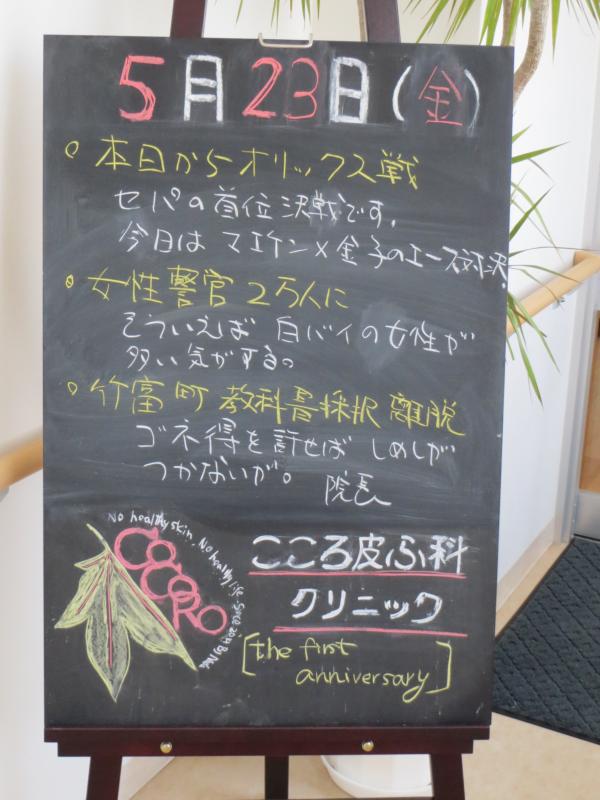 5月23日(金)
○ 本日からオリックス戦
セパの首位決戦です。
今日は マエケン×金子のエース対決。
○ 女性警官 2万人に
そういえば 白バイの女性が
多い気がする。
○ 竹富町 教科書採択 離脱
ゴネ得を許せば しめしが
つかないが。 院長
No healthy skin, No healthy life. Since 2013
COCORO
こころ皮ふ科
クリニック
[the first
anniversary]